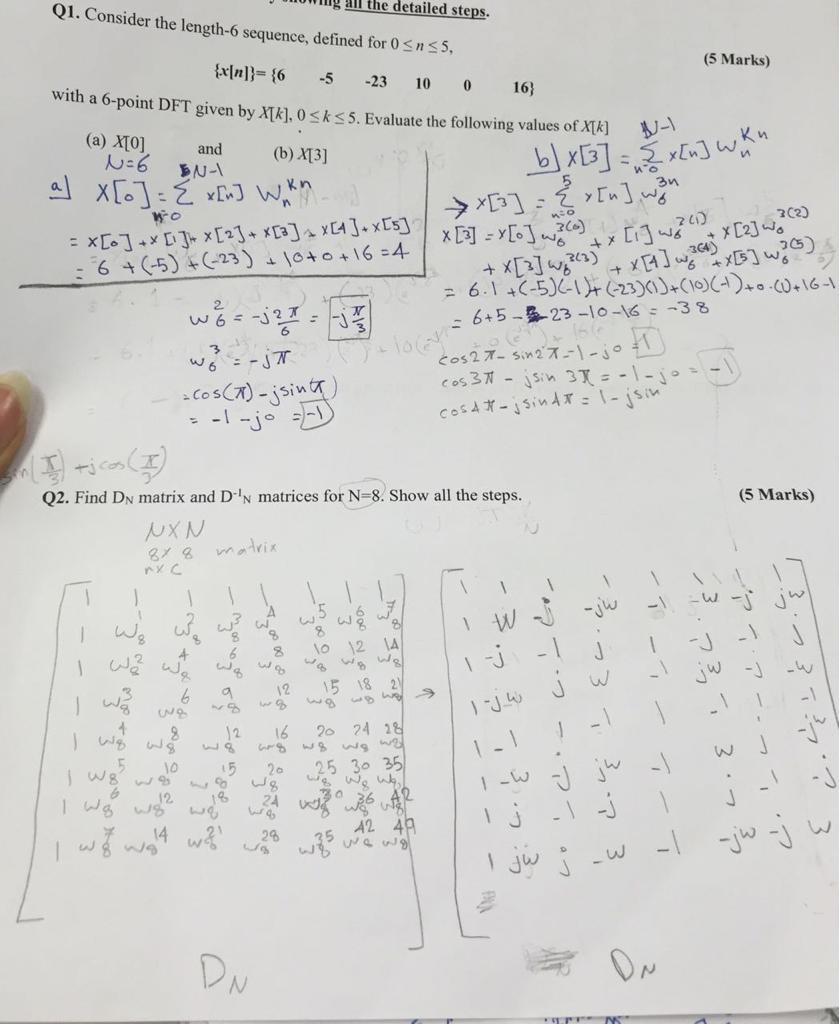 all the detailed steps.
Q1. Consider the length-6 sequence, defined for 0 ≤ n ≤ 5,
(5 Marks)
{x[n]}= {6 -5 -23 10 0 16}
with a 6-point DFT given by X[k], 0 ≤ k ≤ 5. Evaluate the following values of X[k]
(a) X[0] and (b) X[3]
N=6
a) X[0] = Σ x[n] W_n^kn
N-1
n=0
= x[0] + x[1] + x[2] + x[3] + x[4] + x[5]
= 6 + (-5) + (-23) + 10 + 0 + 16 = 4
b) X[3] = Σ x[n] W_n^kn
N-1
n=0
→ X[3] = Σ x[n] w_6^3n
5
n=0
X[3] = x[0] w_6^3(0) + x[1] w_6^3(1) + x[2] w_6^3(2)
+ x[3] w_6^3(3) + x[4] w_6^3(4) + x[5] w_6^3(5)
= 6.1 + (-5)(-1) + (-23)(1) + (10)(-1) + 0.(1) + 16-1
= 6+5-23-10-16 = -38
w_6^2 = -j2π/6 = -jπ/3
w_6^3 = -jπ
= cos(π) - jsin(π)
= -1 - j0 = -1
cos2π - sin2π = 1 - j0 = 1
cos3π - jsin 3π = -1 - j0 = -1
cos4π - jsin4π = 1 - jsin
sin(π/3) + jcos(π/3)
Q2. Find D_N matrix and D^-1_N matrices for N=8. Show all the steps.
(5 Marks)
N×N
8×8 matrix
1 1 1 1 1 1 1 1
1 w_8^1 w_8^2 w_8^3 w_8^4 w_8^5 w_8^6 w_8^7
1 w_8^2 w_8^4 w_8^6 w_8^8 w_8^10 w_8^12 w_8^14
1 w_8^3 w_8^6 w_8^9 w_8^12 w_8^15 w_8^18 w_8^21
1 w_8^4 w_8^8 w_8^12 w_8^16 w_8^20 w_8^24 w_8^28
1 w_8^5 w_8^10 w_8^15 w_8^20 w_8^25 w_8^30 w_8^35
1 w_8^6 w_8^12 w_8^18 w_8^24 w_8^30 w_8^36 w_8^42
1 w_8^7 w_8^14 w_8^21 w_8^28 w_8^35 w_8^42 w_8^49
D_N
→
1 1 1 1 1 1 1 1
1 w -j -jw -1 -w -j jw
1 -j -1 j 1 -j -1 j
1 -jw j w -1 jw -j -w
1 -1 1 -1 1 -1 1 -1
1 -w -j jw -1 w j -jw
1 j -1 -j 1 j -1 -j
1 jw j -w -1 -jw -j w
D_N